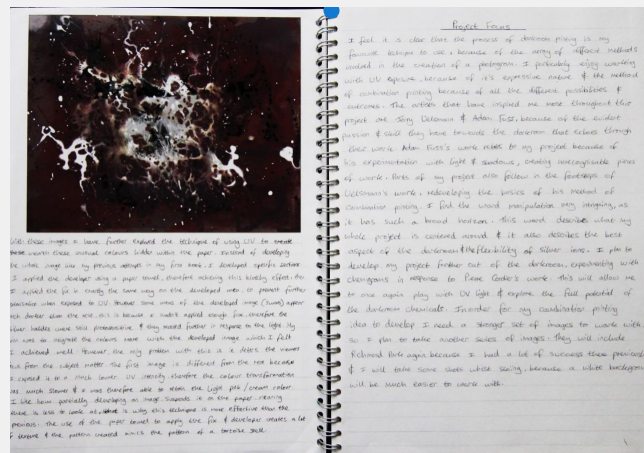 With these images I have further explored the technique of using UV to create
these unearth these unusual colours hidden within the paper. Instead of developing
the whole image like my previous attempts in my first book, I developed specific sections
I applied the developer using a paper towel, therefore achieving this blotchy effect. Then
I applied the fix in exactly the same way on the developed area, to prevent further
when exposed to UV. However some areas of the developed image (Tuned) appear
much darker than the rest, this is because I hadn't applied enough fix, therefore the
silver halides were still photosensitive & they reacted further in response to the light. My
aim was to integrate the colours more with the developed image which I felt
I achieved well. However, the only problem with this is it deters the viewers
focus from the subject matter. The first image is different from the rest because
I exposed it to a much lower UV intensity, therefore the colour transformation
was much slower & I was therefore able to retain the light pink/cream colour.
I like how partially developing an image suspends it on the paper, meaning
there is less to look at, which is why this technique is more effective than the
previous. The use of the paper towel to apply the fix & developer creates a lot
of texture & the pattern created mimics the pattern of a tortoise shell.
Project Focus
I feel it is clear that the process of darkroom printing is my
favourite technique to use, because of the array of different methods
involved in the creation of a photogram. I particularly enjoy working
with UV exposure, because of it's expressive nature & the method
of combination printing because of all the different possibilities &
outcomes. The artists that have inspired me most throughout this
project are Jerry Uelsmann & Adam Fuss, because of the evident
passion & skill they have towards the darkroom that echoes through
their work. Adam Fuss's work relates to my project because of
his experimentation with light & shadows, creating unrecognisable pieces
of work. Parts of my project also follow in the footsteps of
Uelsmann's work, redeveloping the basics of his method of
combination printing. I find the word manipulation very intriguing, as
it has such a broad horizon. This word describes what my
whole project is centered around & it also describes the best
aspect of the darkroom & the flexibility of silver ions. I plan to
develop my project further out of the darkroom, experimenting with
chemigrams in response to Pierre Cordier's work. This will allow me
to once again play with UV light & explore the full potential of
the darkroom chemicals. In order for my combination printing
idea to develop I need a stronger set of images to work with
so I plan to take another series of images. They will include
Richmond Park again because I had a lot of success there previously
& I will take some shots whilst skiing, because a white background
will be much easier to work with.